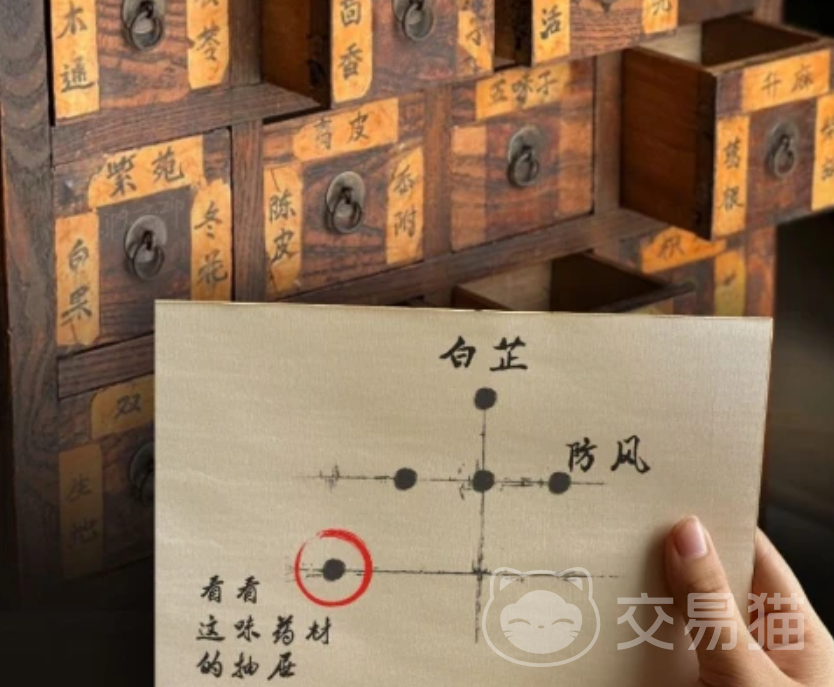 木通
茴香
活
升麻
葛根
五味子
青皮
陈皮
香附
紫苑
白果
冬花
双
生地
白芷
防风
看看
这味药材
的抽屉
交易猫